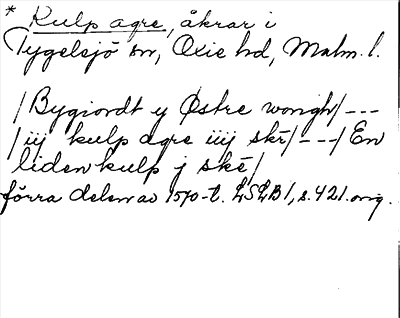 * Kulp agre, åkrar i
Tygelsjö sn, Oxie hd, Malm. l.
/Bygiordt y Østre wongh/---
/iij kulp agre iiij skē/---/En
liden kulp j skē/
förra delen av 1570-t. LSLB 1, s. 421. orig.